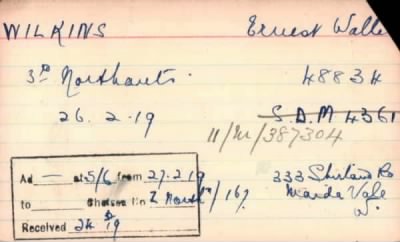 WILKINS Ernest Walte
3rd Northants. 48834
26.2.19 S.D.M 4361
11/M/387304
Ad — at 5/6 from 27.2.19
to — Chelsea lin Z North'n/167
Received 24 19
333 Shirland Rd
Maida Vale
W.